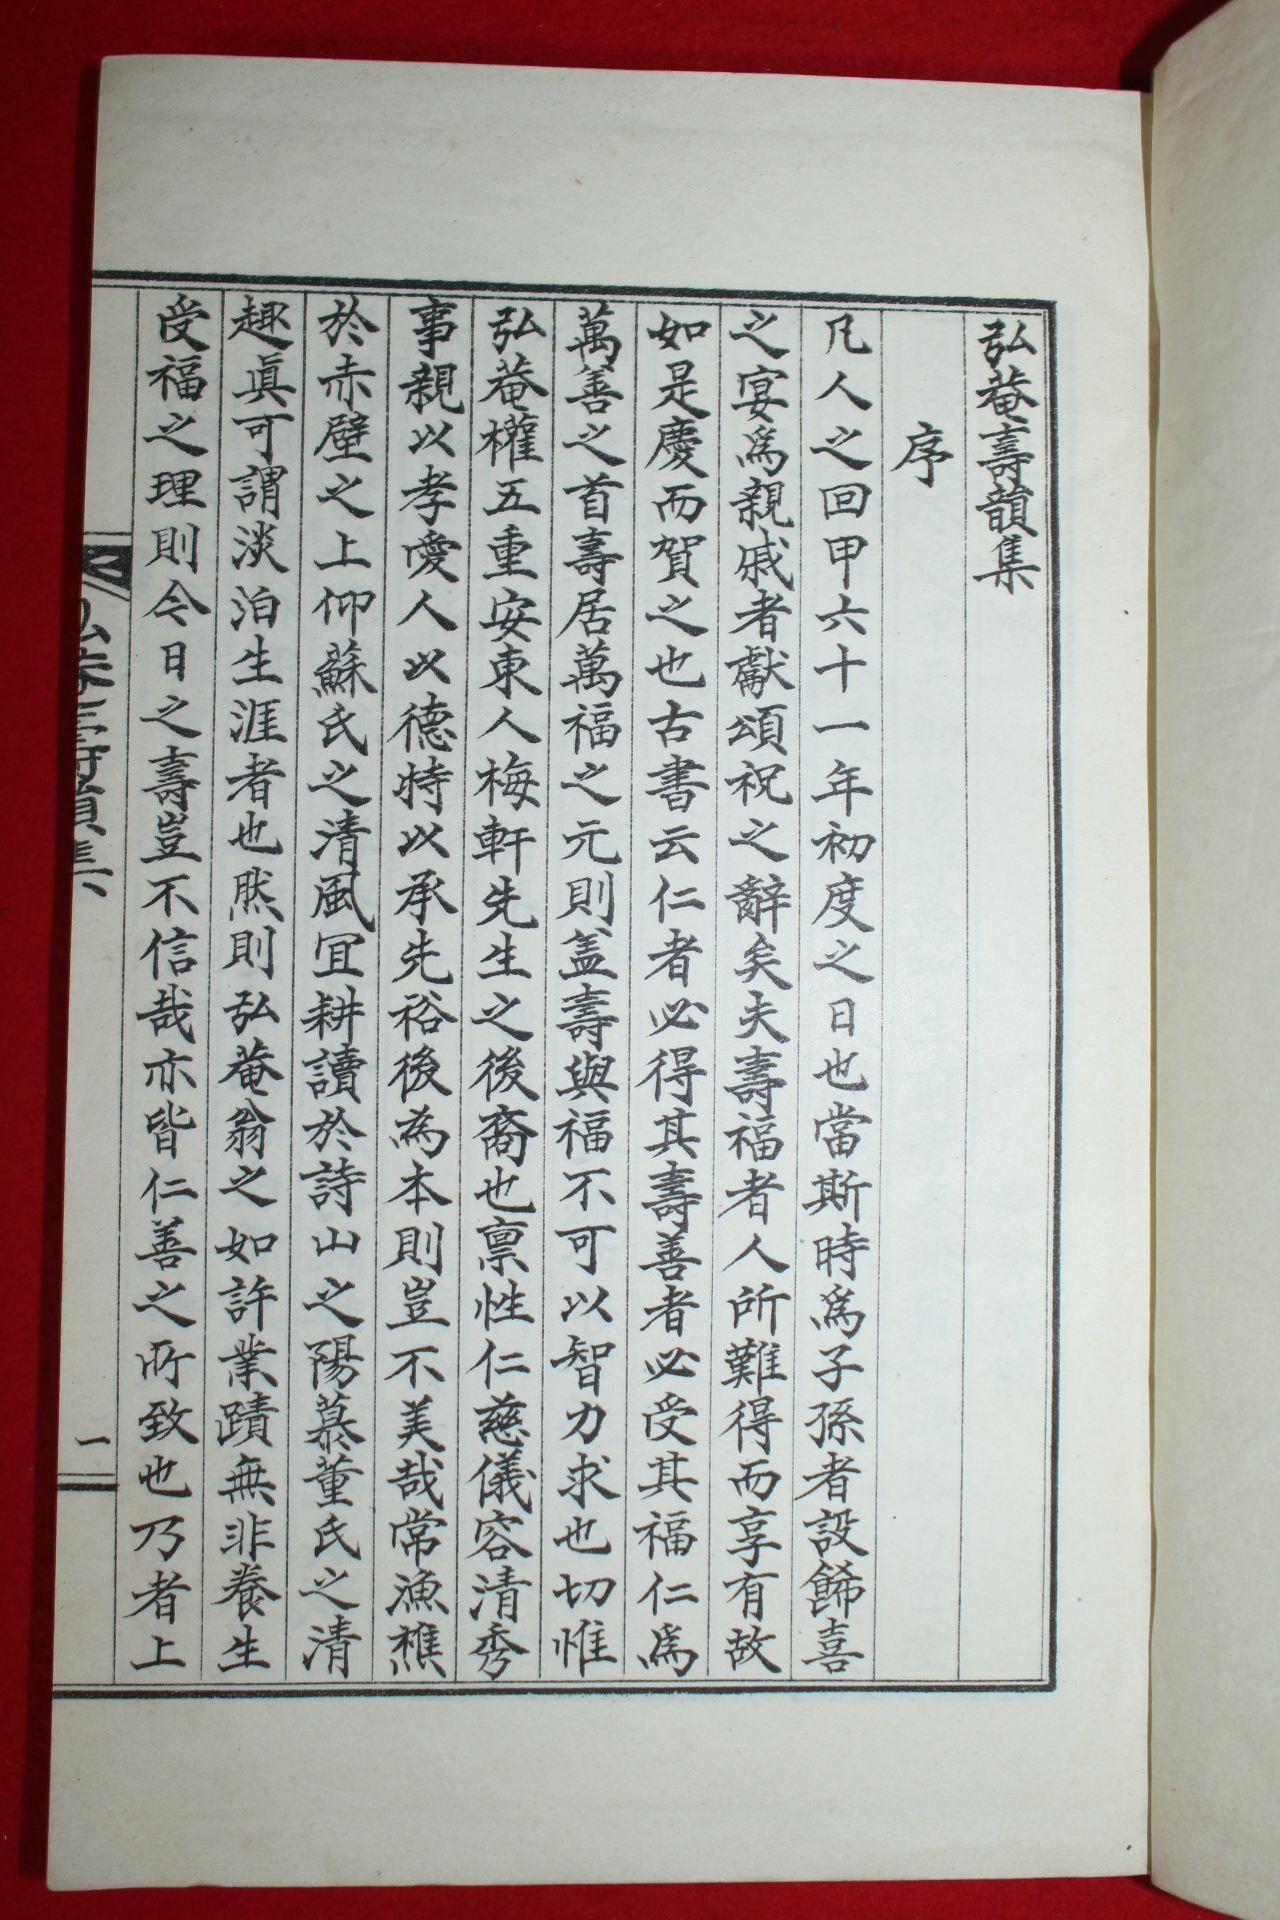 弘菴壽韻集
序
凡人之回甲六十一年初度之日也當斯時爲子孫者設餙喜
之宴爲親戚者獻頌祝之辭矣夫壽福者人所難得而享有故
如是慶而賀之也古書云仁者必得其壽善者必受其福仁爲
萬善之首壽居萬福之元則盖壽與福不可以智力求也切惟
弘菴權五重安東人梅軒先生之後裔也禀性仁慈儀容清秀
事親以孝愛人以德特以承先裕後為本則豈不美哉常漁樵
於赤壁之上仰蘇氏之清風冝耕讀於詩山之陽慕董氏之清
趣眞可謂淡泊生涯者也然則弘菴翁之如許業蹟無非養生
受福之理則今日之壽豈不信哉亦皆仁善之所致也乃者上
弘菴壽韻集
一